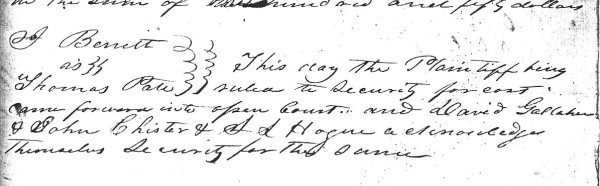 in the sum of hundred and fifty dollars
J Berrett
as
This day the Plaintiff being
Thomas Pate ruled to Security for cost
came forward into open Court and David Gallaher
& John Chister & A L Hogue acknowledges
themselves Security for the same